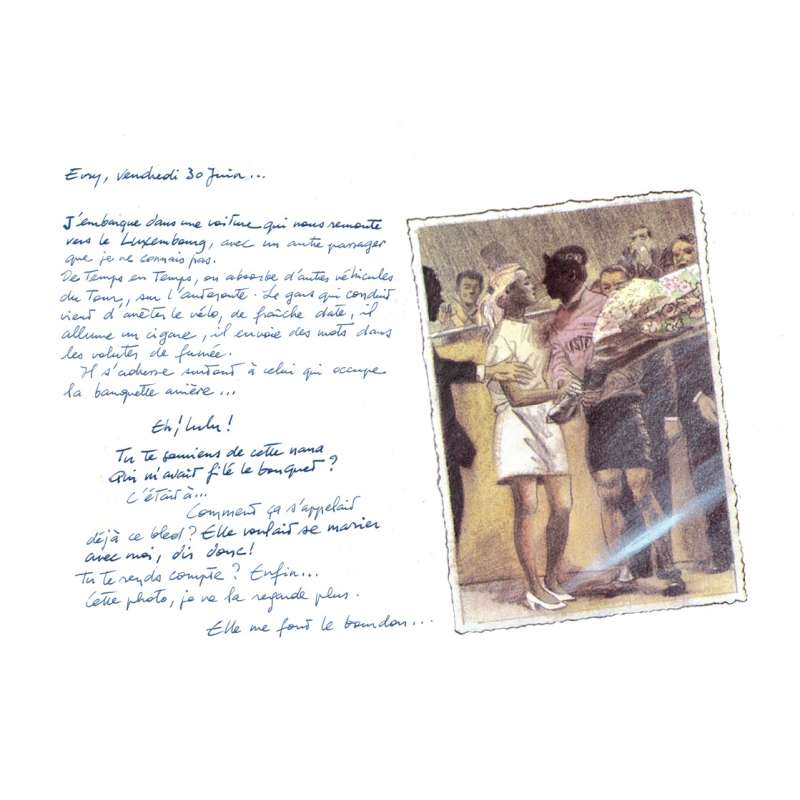 Evry, vendredi 30 Juin...
J'embarque dans une voiture qui nous remonte
vers le Luxembourg, avec un autre passager
que je ne connais pas.
De Temps en Temps, on absorbe d'autres véhicules
du Tour, sur l'autoroute. Le gars qui conduit
vient d'arrêter le vélo, de fraîche date, il
allume un cigare, il envoie des mots dans
les volutes de fumée.
Il s'adresse surtout à celui qui occupe
la banquette arrière...
Eh! Lulu!
Tu te souviens de cette nana
Qui m'avait filé le bouquet?
C'était à...
Comment ça s'appelait
déjà ce bled? Elle voulait se marier
avec moi, dis donc!
Tu te rends compte? Enfin...
Cette photo, je ne la regarde plus.
Elle me fout le bourdon...